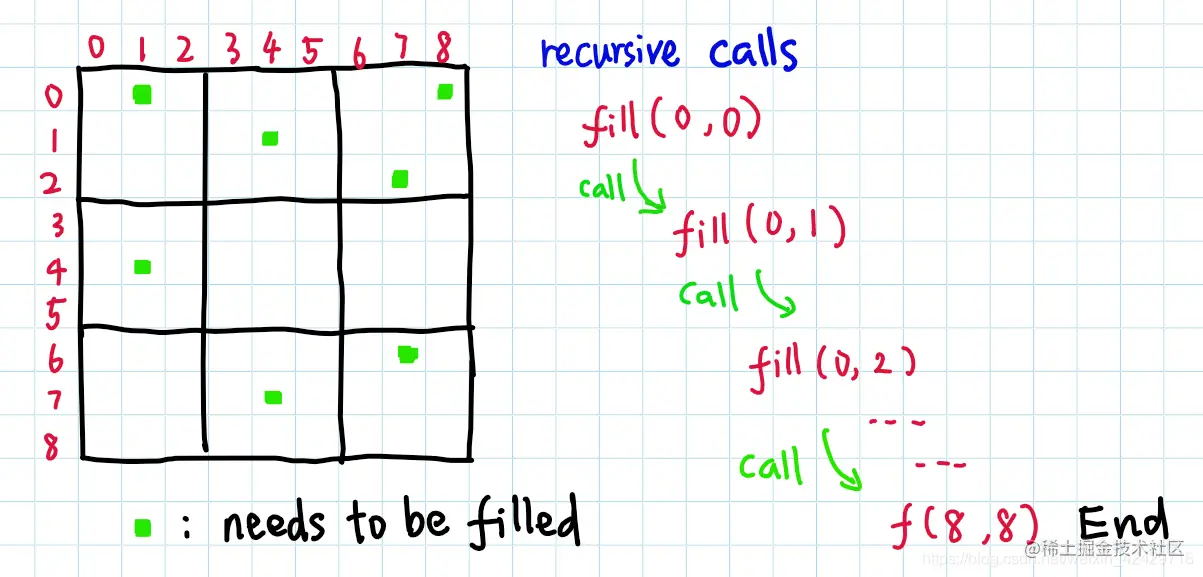 0 1 2 3 4 5 6 7 8
0
1
2
3
4
5
6
7
8
: needs to be filled
recursive calls
fill(0,0)
call
fill(0,1)
call
fill(0,2)
---
call
---
f(8,8) End
@稀土掘金技术社区